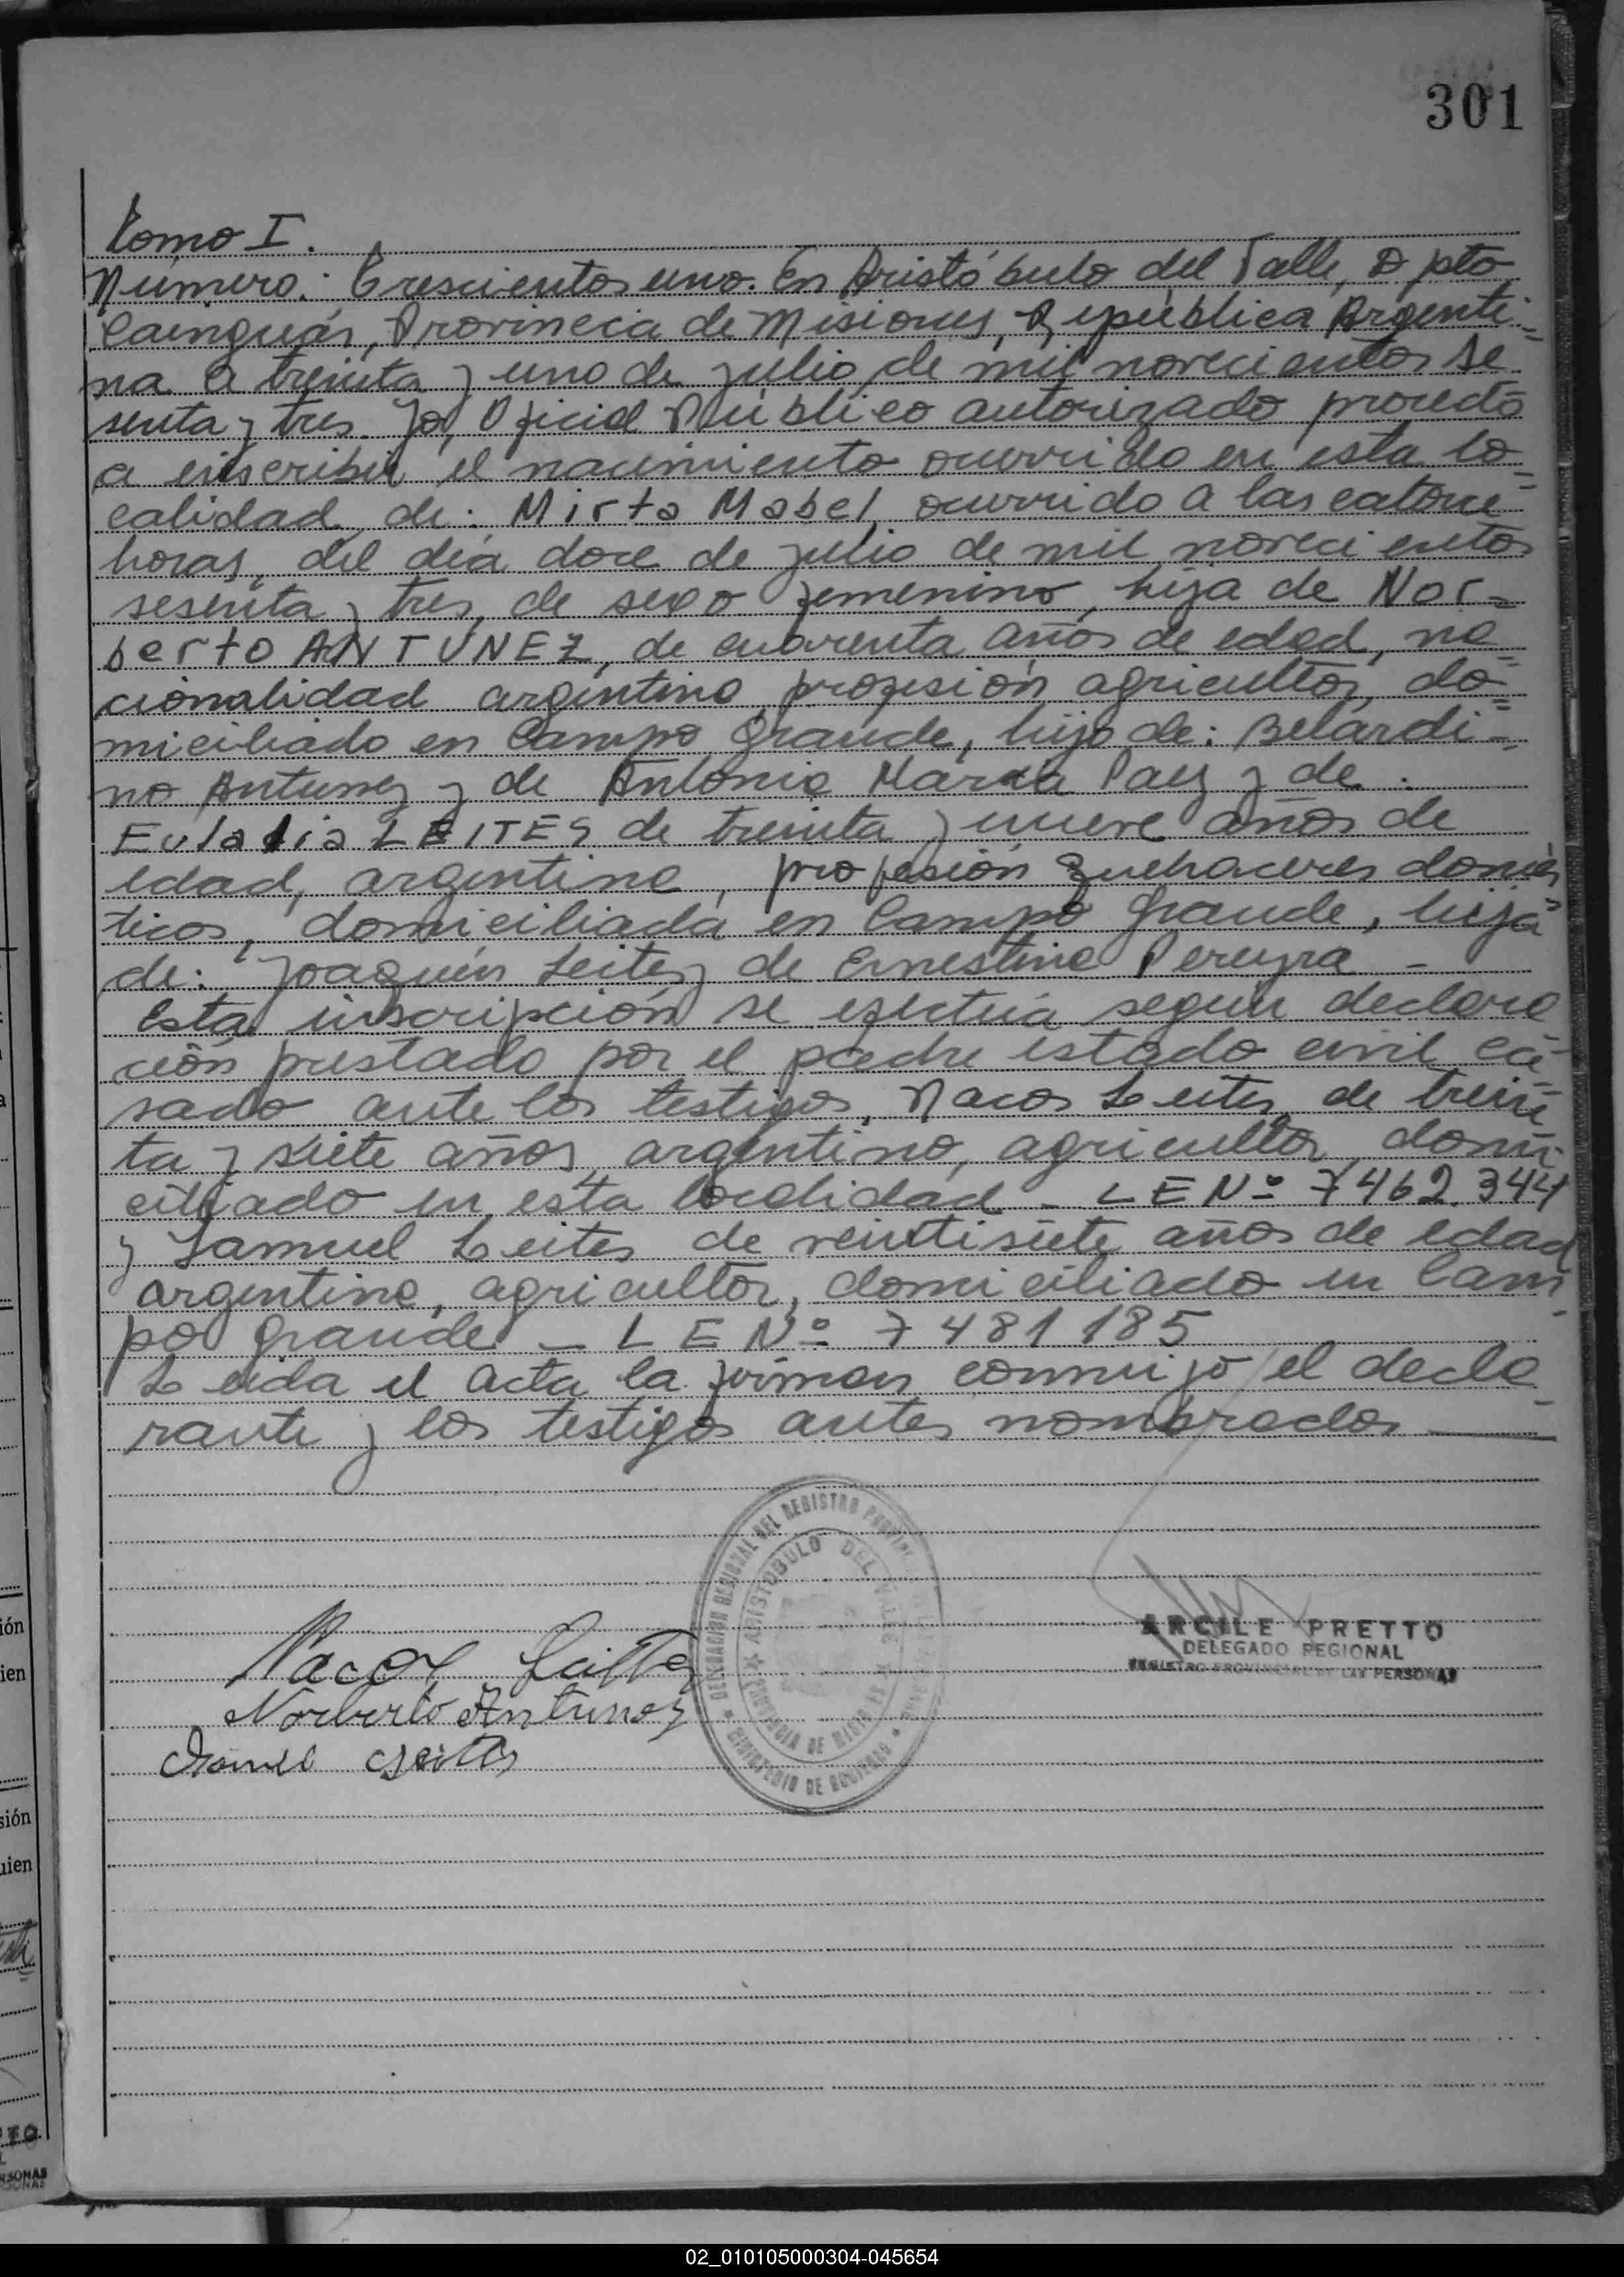 301
Tomo I.
Número: Trescientos uno. En Aristóbulo del Valle, Dpto
Cainguás, Provincia de Misiones, República Argenti-
na a treinta y uno de julio de mil novecientos se
senta y tres. Yo, Oficial Público autorizado procedo
a inscribir el nacimiento ocurrido en esta lo-
calidad de: Mirta Mabel ocurrido a las catorce
horas, del día doce de julio de mil novecientos
sesenta y tres, de sexo femenino, hija de Nor-
berto ANTUNEZ, de cuarenta años de edad, na-
cionalidad argentina, profesión agricultor, do-
miciliado en Campo Grande, hijo de: Belardi-
no Antunez y de Antonia María Paez y de :
Eulalia LEITES de treinta y nueve años de
edad, argentina, profesión quehaceres domés
ticos, domiciliada en Campo Grande, hija
de: Joaquín Leites y de Ernestina Pereyra -
Esta inscripción se efectúa según declara
ción prestado por el padre estado civil ca-
sado ante los testigos, Nacor Leites de trein
ta y siete años argentino, agricultor, domi-
ciliado en esta localidad - LE Nº 7462.344
y Samuel Leites de veintisiete años de edad
argentino, agricultor, domiciliado en Cam
po grande - LE Nº 7481185
Leida el acta la firman conmigo el decla
rante y los testigos antes nombrados
DELEGACION REGIONAL DEL REGISTRO
ARISTOBULO DEL VALLE
PROVINCIA DE MISIONES
MINISTERIO DE GOBIERNO
ARCILE PRETTO
DELEGADO REGIONAL
REGISTRO PROVINCIAL DE LAS PERSONAS
Nacor Leites
Norberto Antunez
ión
ien
sión
uien
TO
RSONAS
02_010105000304-045654